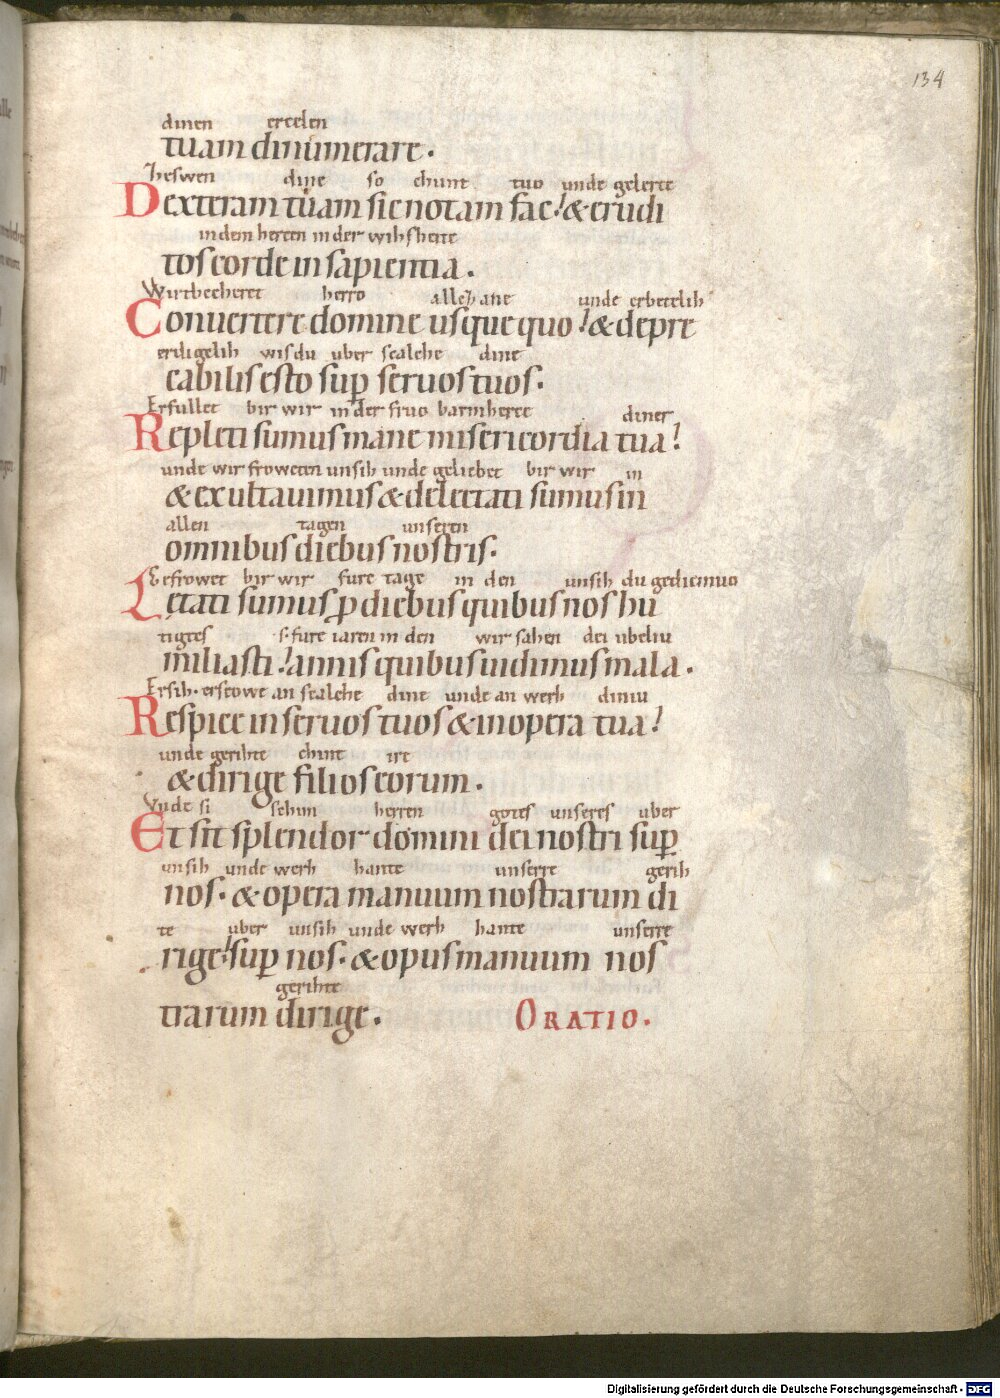 134
dinen ercelen
tuam dinumerare.
Zeswen dine so chunt tuo unde gelerte
Dexteram tuam sic notam fac! & erudi
in dem hercen in der wihsheite
tos corde in sapientia.
Wirtbecheret herro allez ane unde erbetelih
Conuertere domine usque quo! & depre
erdigelih wis du uber scalche dine
cabilis esto sup seruos tuos.
Erfullet bir wir in der fruo barmherce diner
Repleti sumus mane misericordia tua!
unde wir froweten unsih unde geliebet bir wir in
& exultauimus & delectati sumus in
allen tagen unseren
omnibus diebus nostris.
Gefrowet bir wir fure tage in den unsih du gediemuo
Lętati sumus p diebus quibus nos hu
tigtes s. fure iaren in den wir sahen dei ubeliu
miliasti! annis quibus uidimus mala.
Ersih. erscowe an scalche dine unde an werh diniu
Respice in seruos tuos & in opera tua!
unde gerihte chint ire
& dirige filios eorum.
Vnde si schim herren gotes unseres uber
Et sit splendor domini dei nostri sup
unsih unde werh hante unserre gerih
nos. & opera manuum nostrarum di
te uber unsih unde werh hante unserre
rige! sup nos. & opus manuum nos
gerihte
trarum dirige. ORATIO.
Digitalisierung gefördert durch die Deutsche Forschungsgemeinschaft - DFG